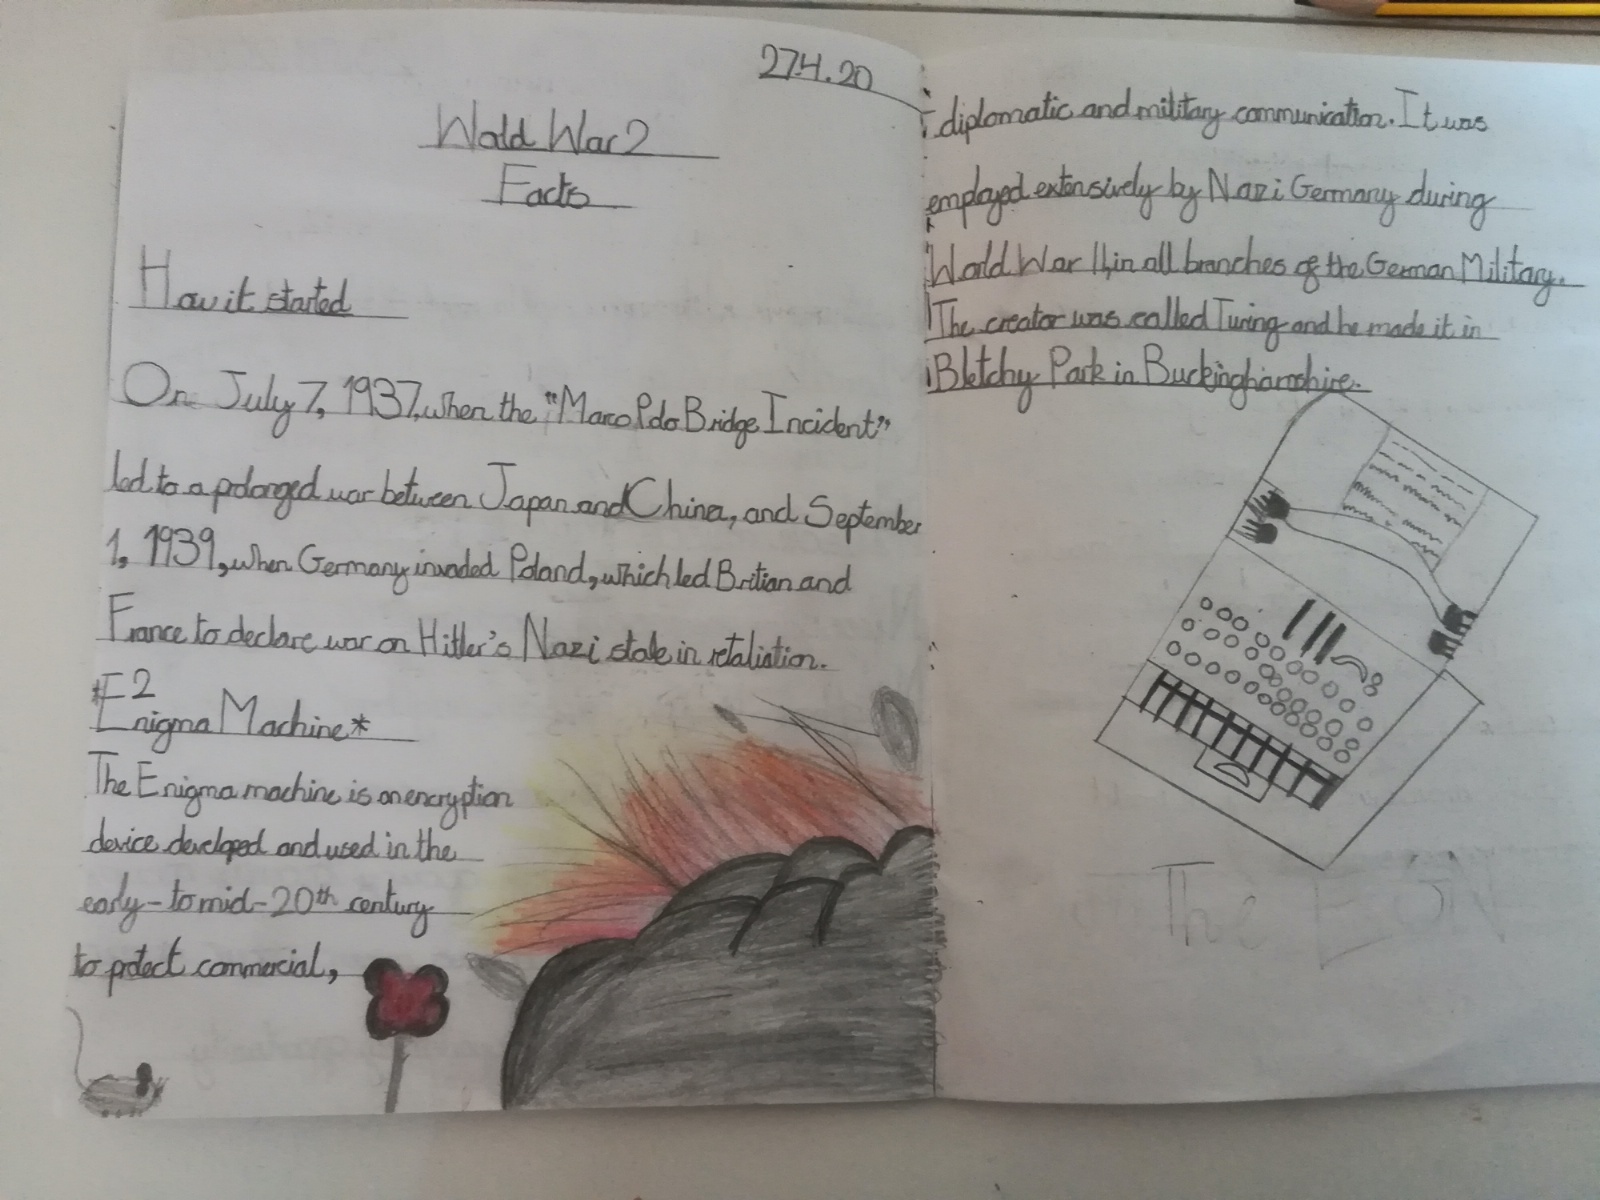 27.4.20
World War 2
Facts
How it started
On July 7, 1937, when the "Marco Polo Bridge Incident"
led to a prolonged war between Japan and China, and September
1, 1939, when Germany invaded Poland, which led Britian and
France to declare war on Hitler's Nazi state in retaliation.
*E2
Enigma Machine*
The Enigma machine is an encryption
device developed and used in the
early-to mid-20th century
to protect commercial,
diplomatic and military communication. It was
employed extensively by Nazi Germany during
World War II, in all branches of the German Military.
The creator was called Turing and he made it in
Bletchy Park in Buckinghamshire.
The